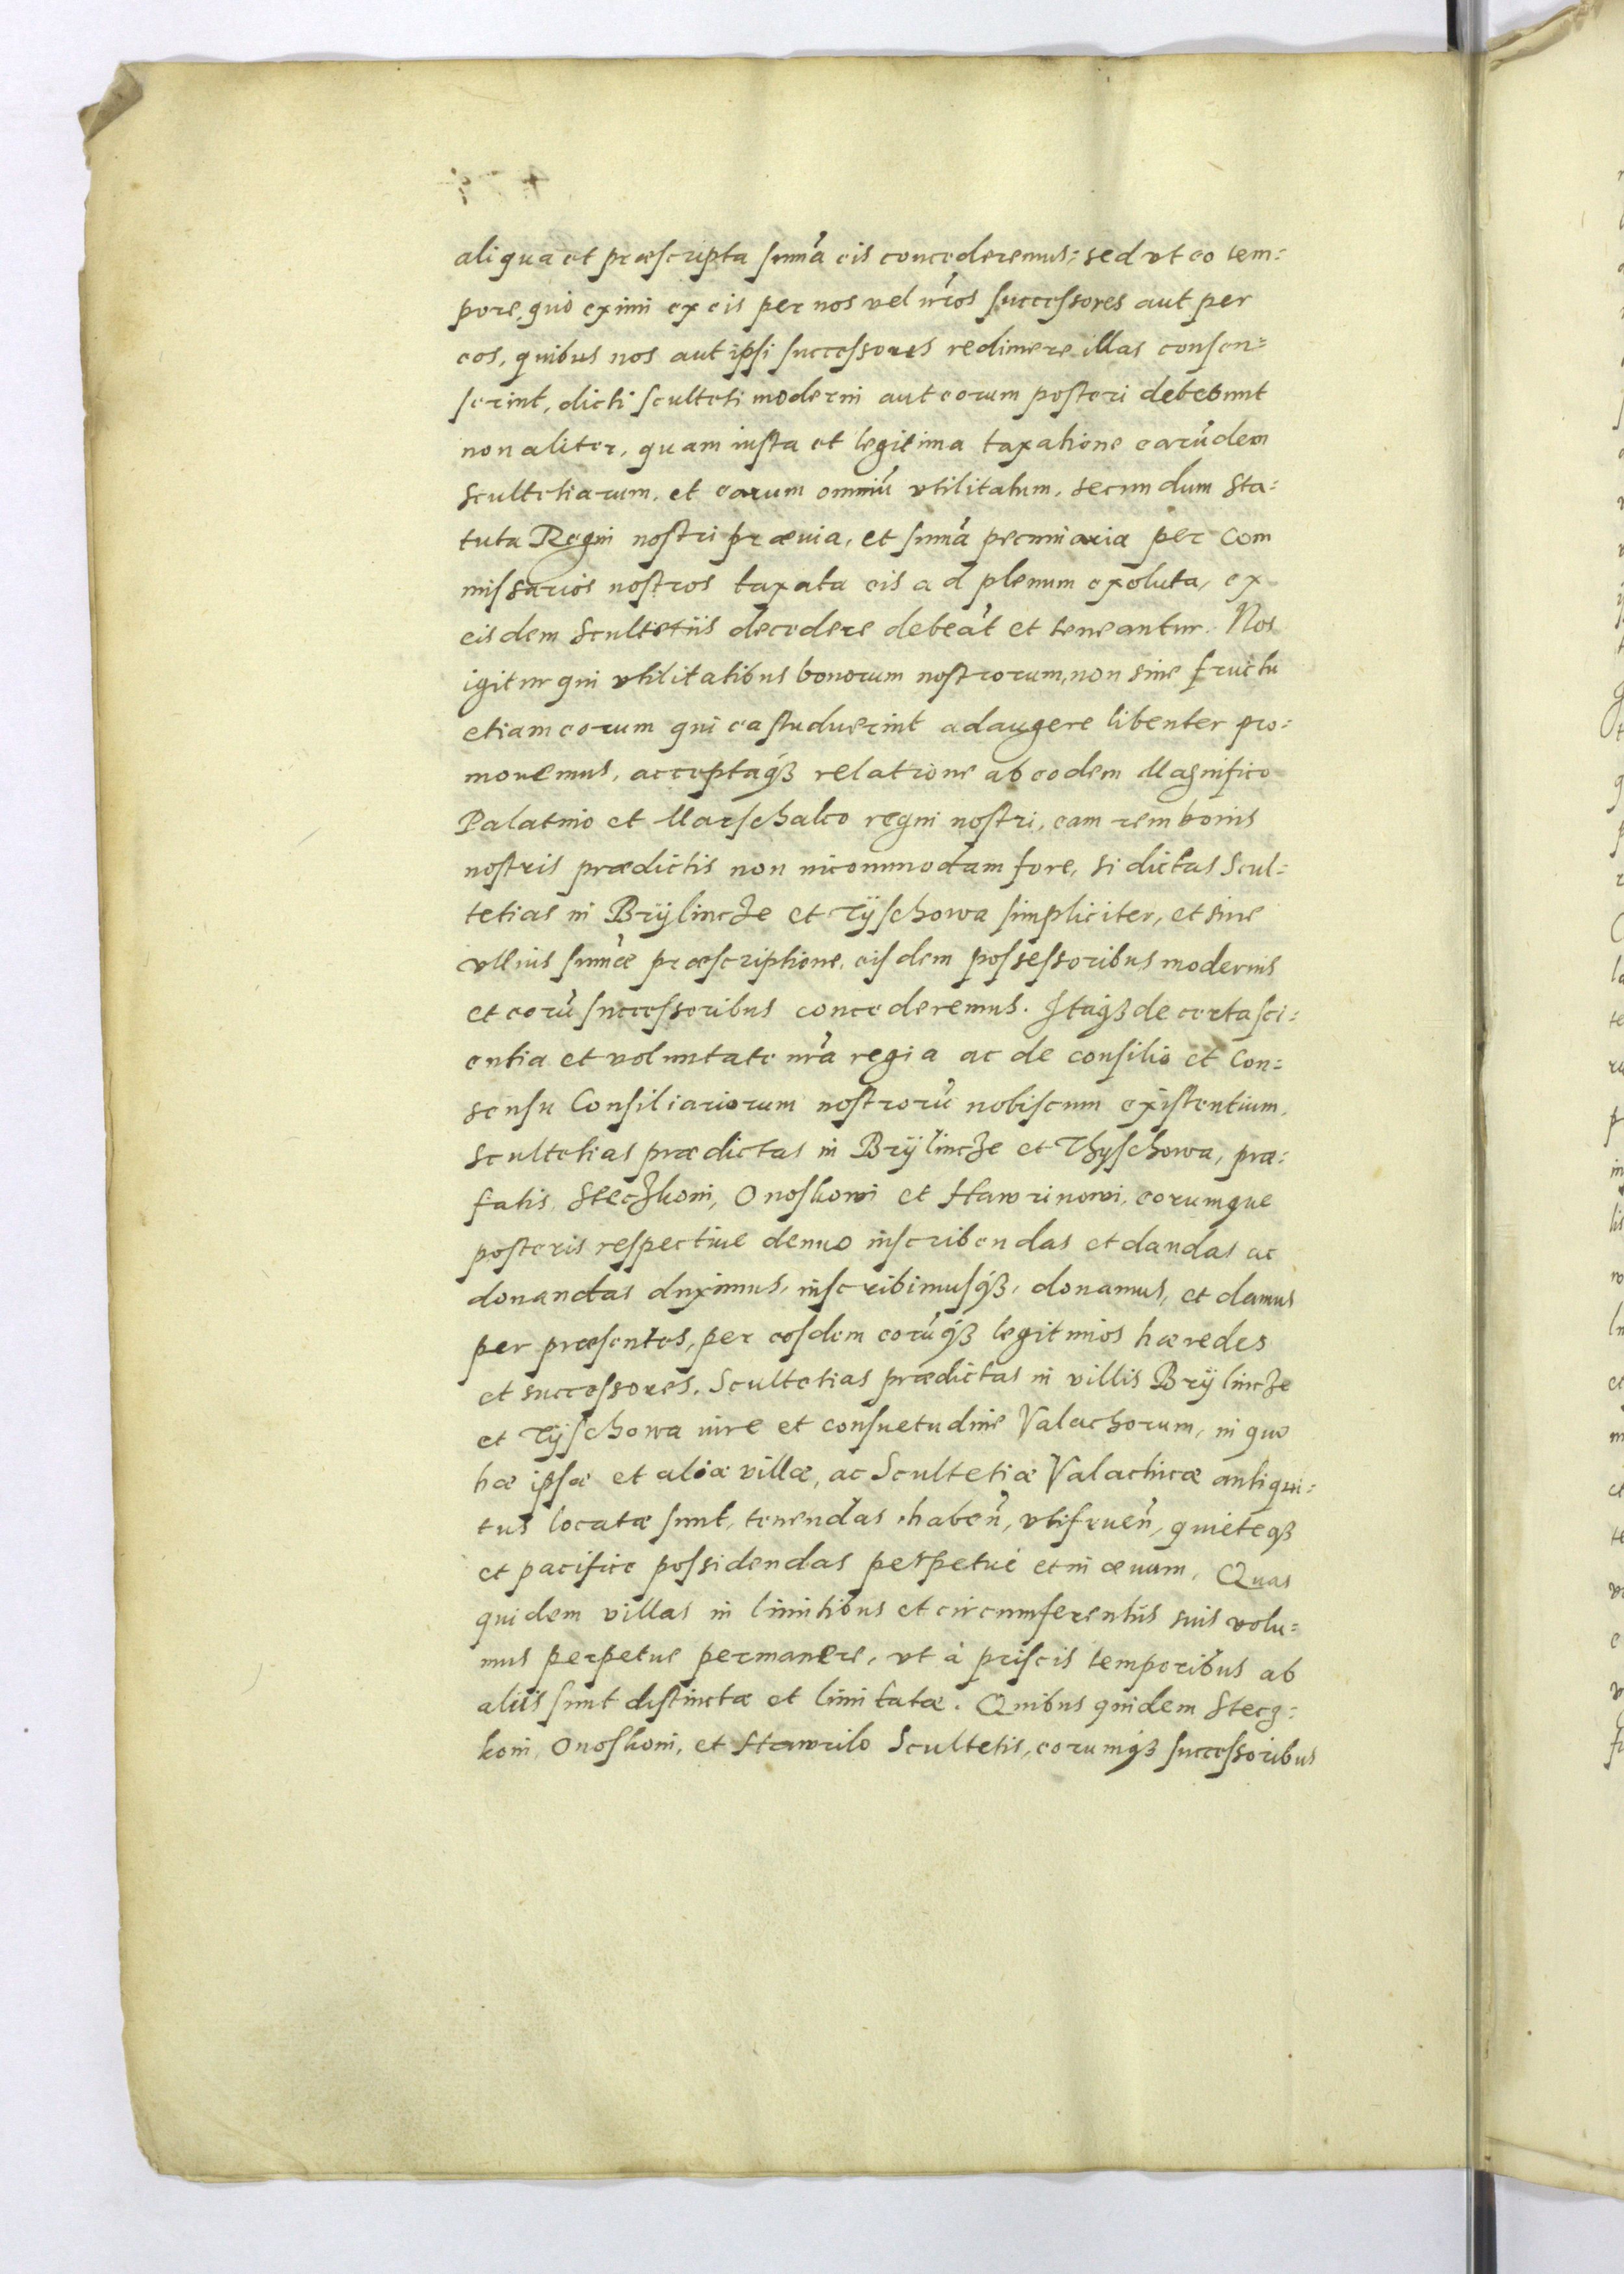 aliqua et præscripta summa eis concederemus: sed vt eo tem=
pore, quo eximi ex eis per nos vel nr̃os successores aut per
eos, quibus nos aut ipsi successores redimere illas consen=
serint, dicti sculteti moderni aut eorum posteri debebunt
non aliter, quam iusta et legitima taxatione earũdem
Scultetiarum, et earum omniũ vtilitatum, secundum Sta=
tuta Regni nostri prævia, et sum̃a pecuniaria per Com
missarios nostros taxata eis ad plenum exoluta, ex
eisdem Scultetiis decedere debeãt et teneantur. Nos
igitur qui vtilitatibus bonorum nostrorum, non sine fructu
etiam eorum qui ea studuerint adaugere libenter pro=
mouemus, acceptaq́ꝫ relatione ab eodem Magnifico
Palatino et Marschalco regni nostri, eam rem bonis
nostris prædictis non incommodam fore, si dictas Scul=
tetias in Brÿlincze et Tÿschowa simpliciter, et sine
vllius sum̃æ præscriptione, eisdem possessoribus modernis
et eorũ successoribus concederemus. Itaq́ꝫ de certa sci=
entia et voluntate nr̃a regia ac de consilio et Con=
sensu Consiliariorum nostrorũ nobiscum existentium,
Scultetias prædictas in Brÿlincze et Thyschowa, præ=
fatis, Steczkoni, Onoskowi et Hawrinowi, eorumque
posteris respectiue denuo inscribendas et dandas ac
donandas duximus, inscribimusq́ꝫ, donamus, et damus
per præsentes, per eosdem eorũq́ꝫ legitimos hæredes
et successores. Scultetias prædictas in villis Brÿlincze
et Tÿschowa iure et consuetudine Valachorum, in quo
hæ ipsæ et aliæ villæ, ac Scultetiæ Valachicæ antiqui=
tus locatæ sunt, tenendas, habeñ, vtifrueñ, quieteq́ꝫ
et pacifice possidendas perpetuè et in æuum. Quas
quidem villas in limitibus et circumferentiis suis volu=
mus perpetue permanere, vt à priscis temporibus ab
aliis sunt distinctæ et limitatæ. Quibus quidem Stecz=
koni, Onoskoni, et Hawrilo Scultetis, eorumq́ꝫ successoribus